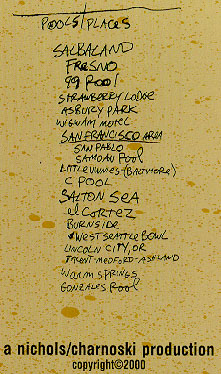 POOLS/PLACES
SALBALAND
FRESNO
99 POOL
STRAWBERRY LODGE
ASBURY PARK
WIGWAM MOTEL
SAN FRANCISCO AREA
SAN PABLO
SAMOAN POOL
LITTLE VINNIE'S (BALTIMORE)
C POOL
SALTON SEA
el CORTEZ
BURNSIDE
WEST SEATTLE BOWL
LINCOLN CITY, OR
TALENT-MEDFORD-ASHLAND
WARM SPRINGS
GONZALES POOL
a nichols/charnoski production
copyright©2000